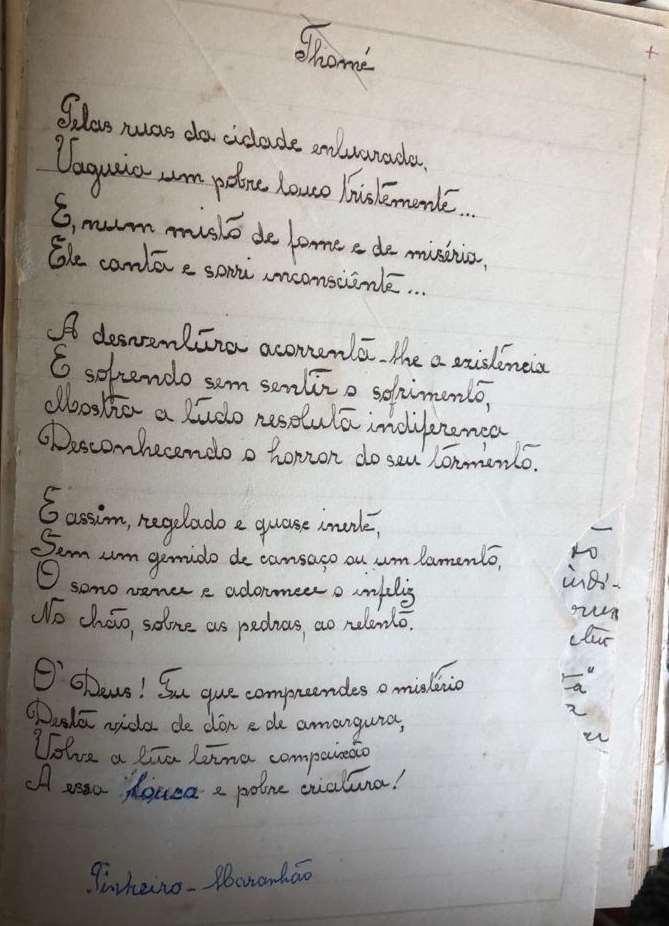 Thomé
Pelas ruas da cidade enluarada,
Vagueia um pobre louco tristemente...
E, num misto de fome e de miséria,
Ele canta e sorri inconsciênte...
A desventura acorrenta-lhe a existência
E sofrendo sem sentir o sofrimento,
Mostra a tudo resoluta indiferença
Desconhecendo o horror do seu tormento.
E assim, regelado e quase inerte,
Sem um gemido de cansaço ou um lamento,
O sono vence e adormece o infeliz
No chão, sobre as pedras, ao relento.
O' Deus! Tu que compreendes o mistério
Desta vida de dôr e de amargura,
Volve a tua terna compaixão
A essa louca e pobre criatura!
Pinheiro - Maranhão
to
indi-